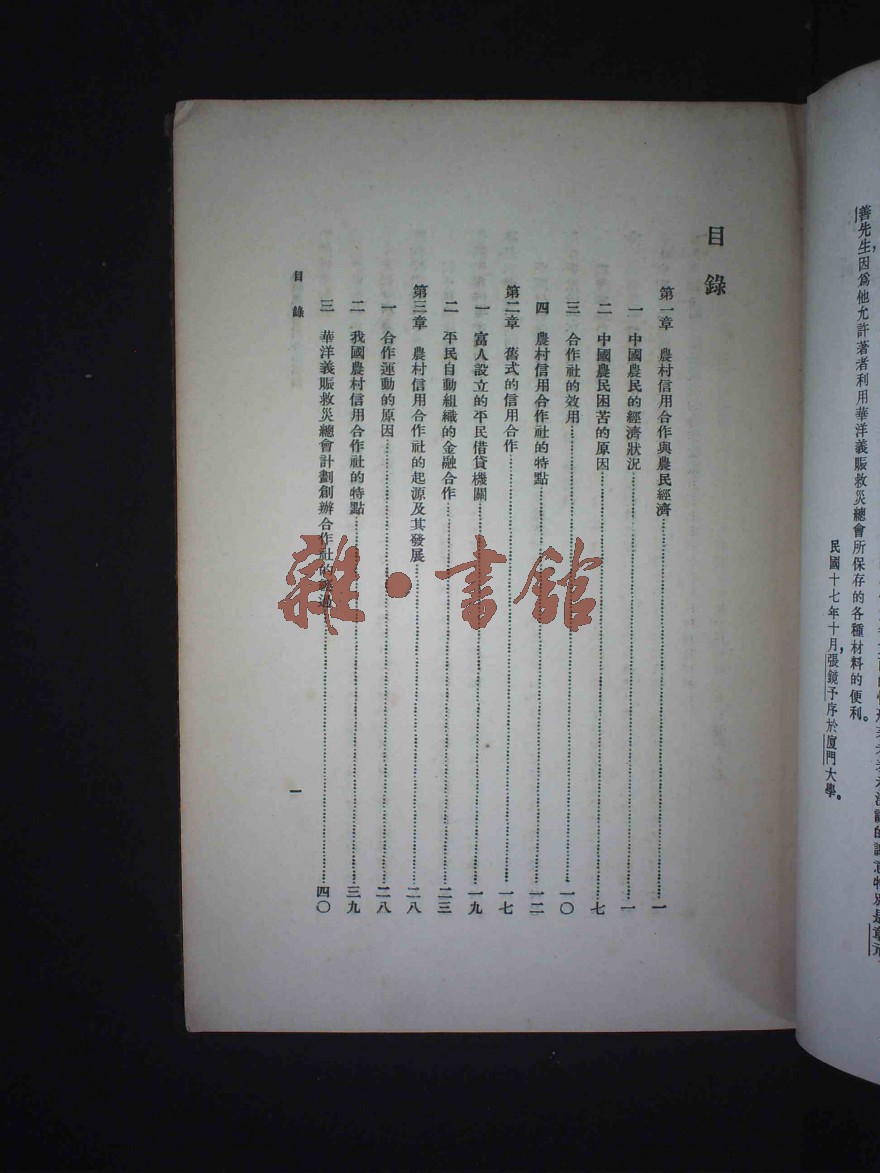 善先生，因爲他允許著者利用華洋義賬救災總會所保存的各種材料的便利。
民國十七年十月，張鏡予序於廈門大學。
目錄
第一章　農村信用合作與農民經濟……一
一　中國農民的經濟狀況……一
二　中國農民困苦的原因……七
三　合作社的效用……一〇
四　農村信用合作社的特點……一二
第二章　舊式的信用合作……一七
一　富人設立的平民借貸機關……一九
二　平民自動組織的金融合作……二三
第三章　農村信用合作社的起源及其發展……二八
一　合作運動的原因……二八
二　我國農村信用合作社的特點……三九
三　華洋義賑救災總會計劃創辦合作社的經過……四〇
目錄
一
雜·書館